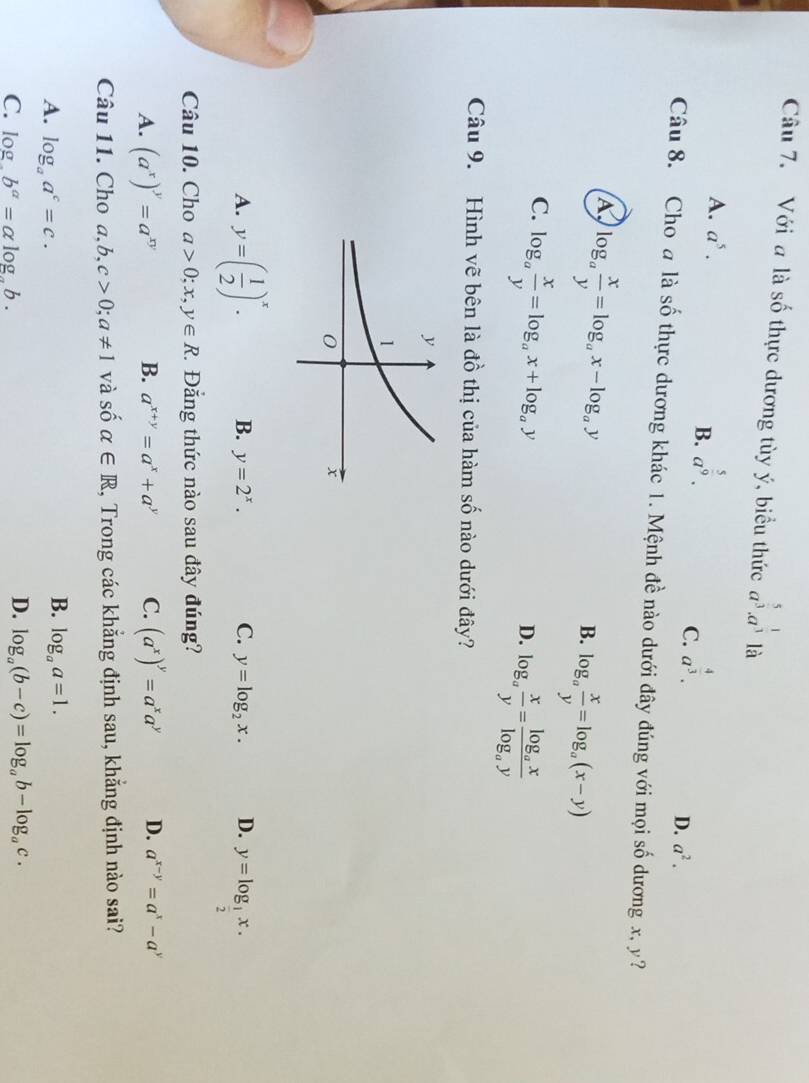 Câu 7. Với a là số thực dương tùy ý, biểu thức a^{5/3}.a^{1/3} là
A. a^5. B. a^{5/9}. C. a^{4/3}. D. a^2.
Câu 8. Cho a là số thực dương khác 1. Mệnh đề nào dưới đây đúng với mọi số dương x, y?
A. log_a x/y = log_a x − log_a y B. log_a x/y = log_a (x − y)
C. log_a x/y = log_a x + log_a y D. log_a x/y = (log_a x)/(log_a y)
Câu 9. Hình vẽ bên là đồ thị của hàm số nào dưới đây?
y
1
O
x
A. y = (1/2)^x. B. y = 2^x. C. y = log_2 x. D. y = log_{1/2} x.
Câu 10. Cho a > 0; x, y ∈ R. Đẳng thức nào sau đây đúng?
A. (a^x)^y = a^{xy} B. a^{x+y} = a^x + a^y C. (a^x)^y = a^x a^y D. a^{x−y} = a^x − a^y
Câu 11. Cho a, b, c > 0; a ≠ 1 và số α ∈ ℝ, Trong các khẳng định sau, khẳng định nào sai?
A. log_a a^c = c. B. log_a a = 1.
C. log_a b^α = α log_a b. D. log_a (b − c) = log_a b − log_a c.